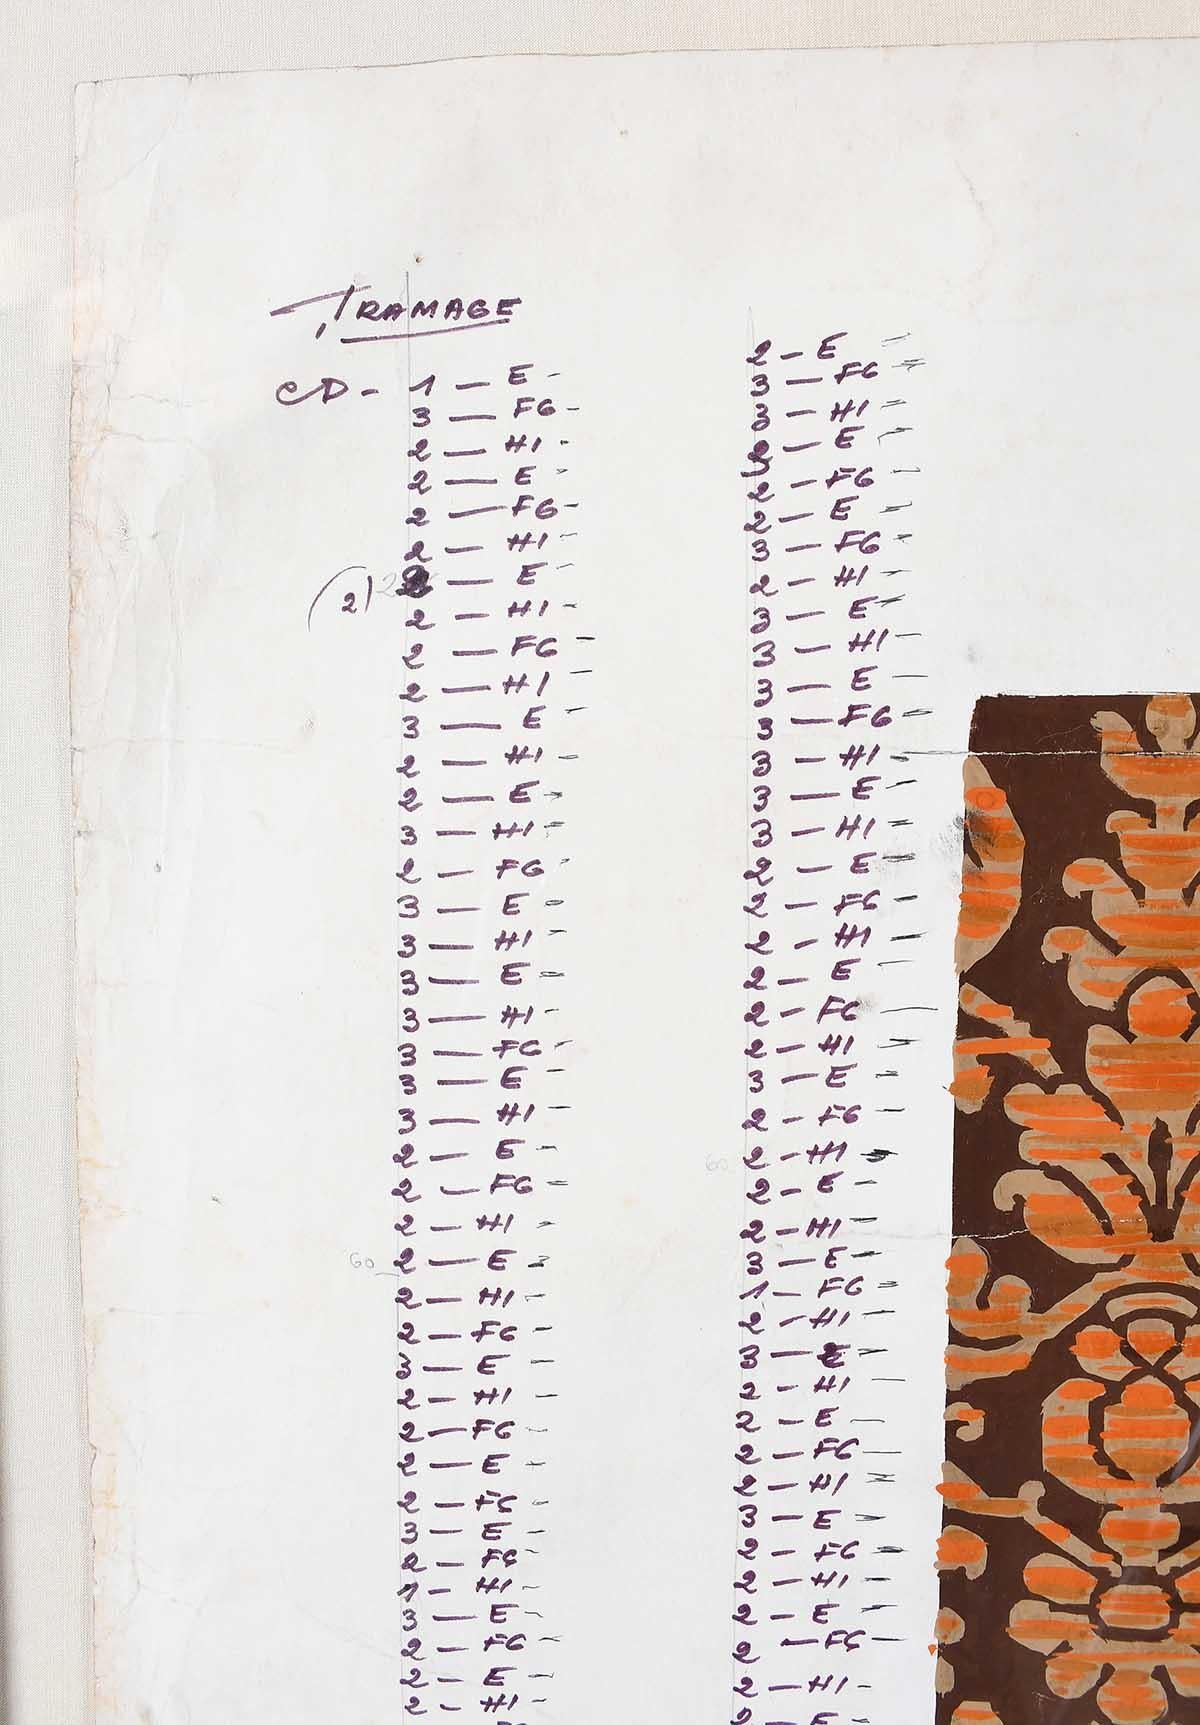 TRAMAGE
CD - 1 — E -
3 — FG -
2 — HI -
2 — E -
2 — FG -
2 — HI -
(2) 2 — E -
2 — HI -
2 — FG -
2 — HI -
3 — E -
2 — HI -
2 — E -
3 — HI -
2 — FG -
3 — E -
3 — HI -
3 — E -
3 — HI -
3 — FG -
3 — E -
3 — HI -
2 — E -
2 — FG -
2 — HI -
60 2 — E -
2 — HI -
2 — FG -
3 — E -
2 — HI -
2 — FG -
2 — E -
2 — FG -
3 — E -
2 — FG -
1 — HI -
3 — E -
2 — FG -
2 — E -
2 — HI -
2 — E -
3 — FG -
3 — HI -
2 — E -
2 — FG -
2 — E -
3 — FG -
2 — HI -
3 — E -
3 — HI -
3 — E -
3 — FG -
3 — HI -
3 — E -
3 — HI -
2 — E -
2 — FG -
2 — HI -
2 — E -
2 — FG -
2 — HI -
3 — E -
2 — FG -
60 2 — HI -
2 — E -
2 — HI -
3 — E -
1 — FG -
2 — HI -
3 — E -
2 — HI -
2 — E -
2 — FG -
2 — HI -
3 — E -
2 — FG -
2 — HI -
2 — E -
2 — FG -
2 — HI -
2 — E -